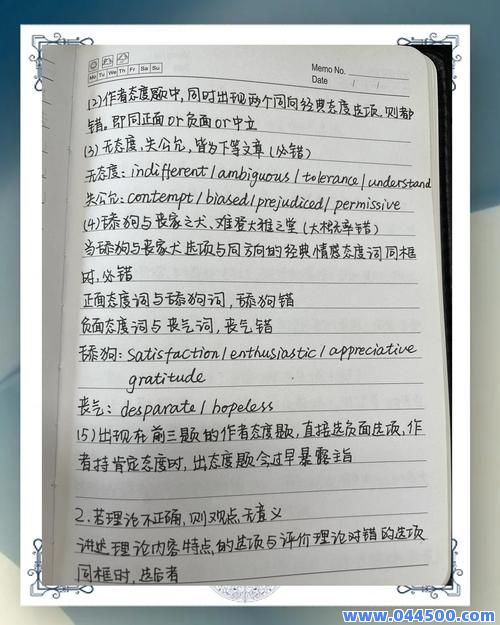 Mo Tu We Th Fr Sa Su
Memo No.
Date / /
(2)作者态度题中,同时出现两个同向经典态度选项,则都
错。即同正面or负面or中立
(3)无态度,失公允,皆为下等文章(必错)
无态度:indifferent/ambiguous/tolerance/understand
失公允:contempt/biased/prejudiced/permissive
(4)舔狗与丧家之犬、难登大雅之堂(大概率错)
当舔狗与丧家犬选项与同方向的经典情感态度词同框
时,必错
正面态度词与舔狗词,舔狗错
负面态度词与丧气词,丧气错
舔狗:satisfaction/enthusiastic/appreciative
gratitude
丧气:desparate/hopeless
(5)出现在前三题的作者态度题,直接选负面选项,作
者持肯定态度时,出态度题会过早暴露主旨
2.若理论不正确,则观点无意义
讲述理论内容特点的选项与评价理论对错的选项
同框时,选后者
www.044500.com